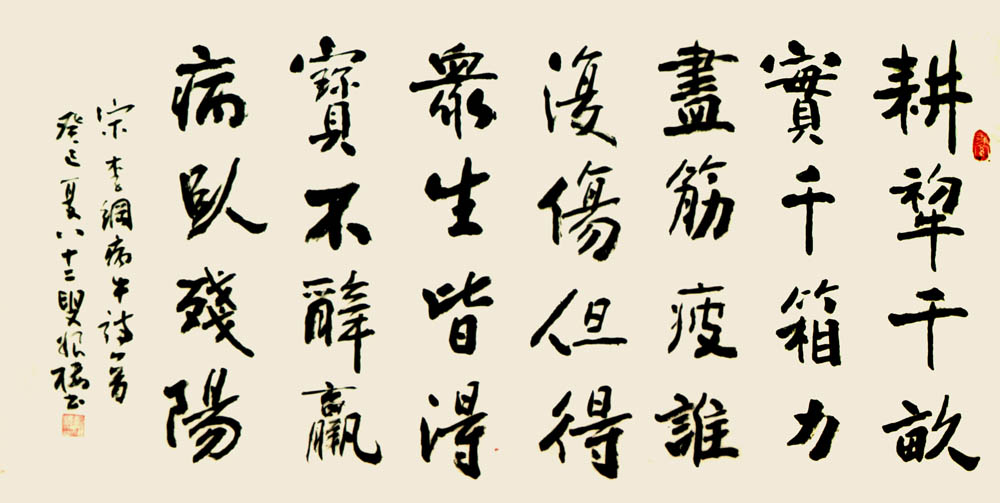 耕犂千畝
實千箱力
盡筋疲誰
復傷但得
眾生皆得
寶不辭羸
病臥殘陽
宋李綱病牛詩一首
癸巳夏八十二叟